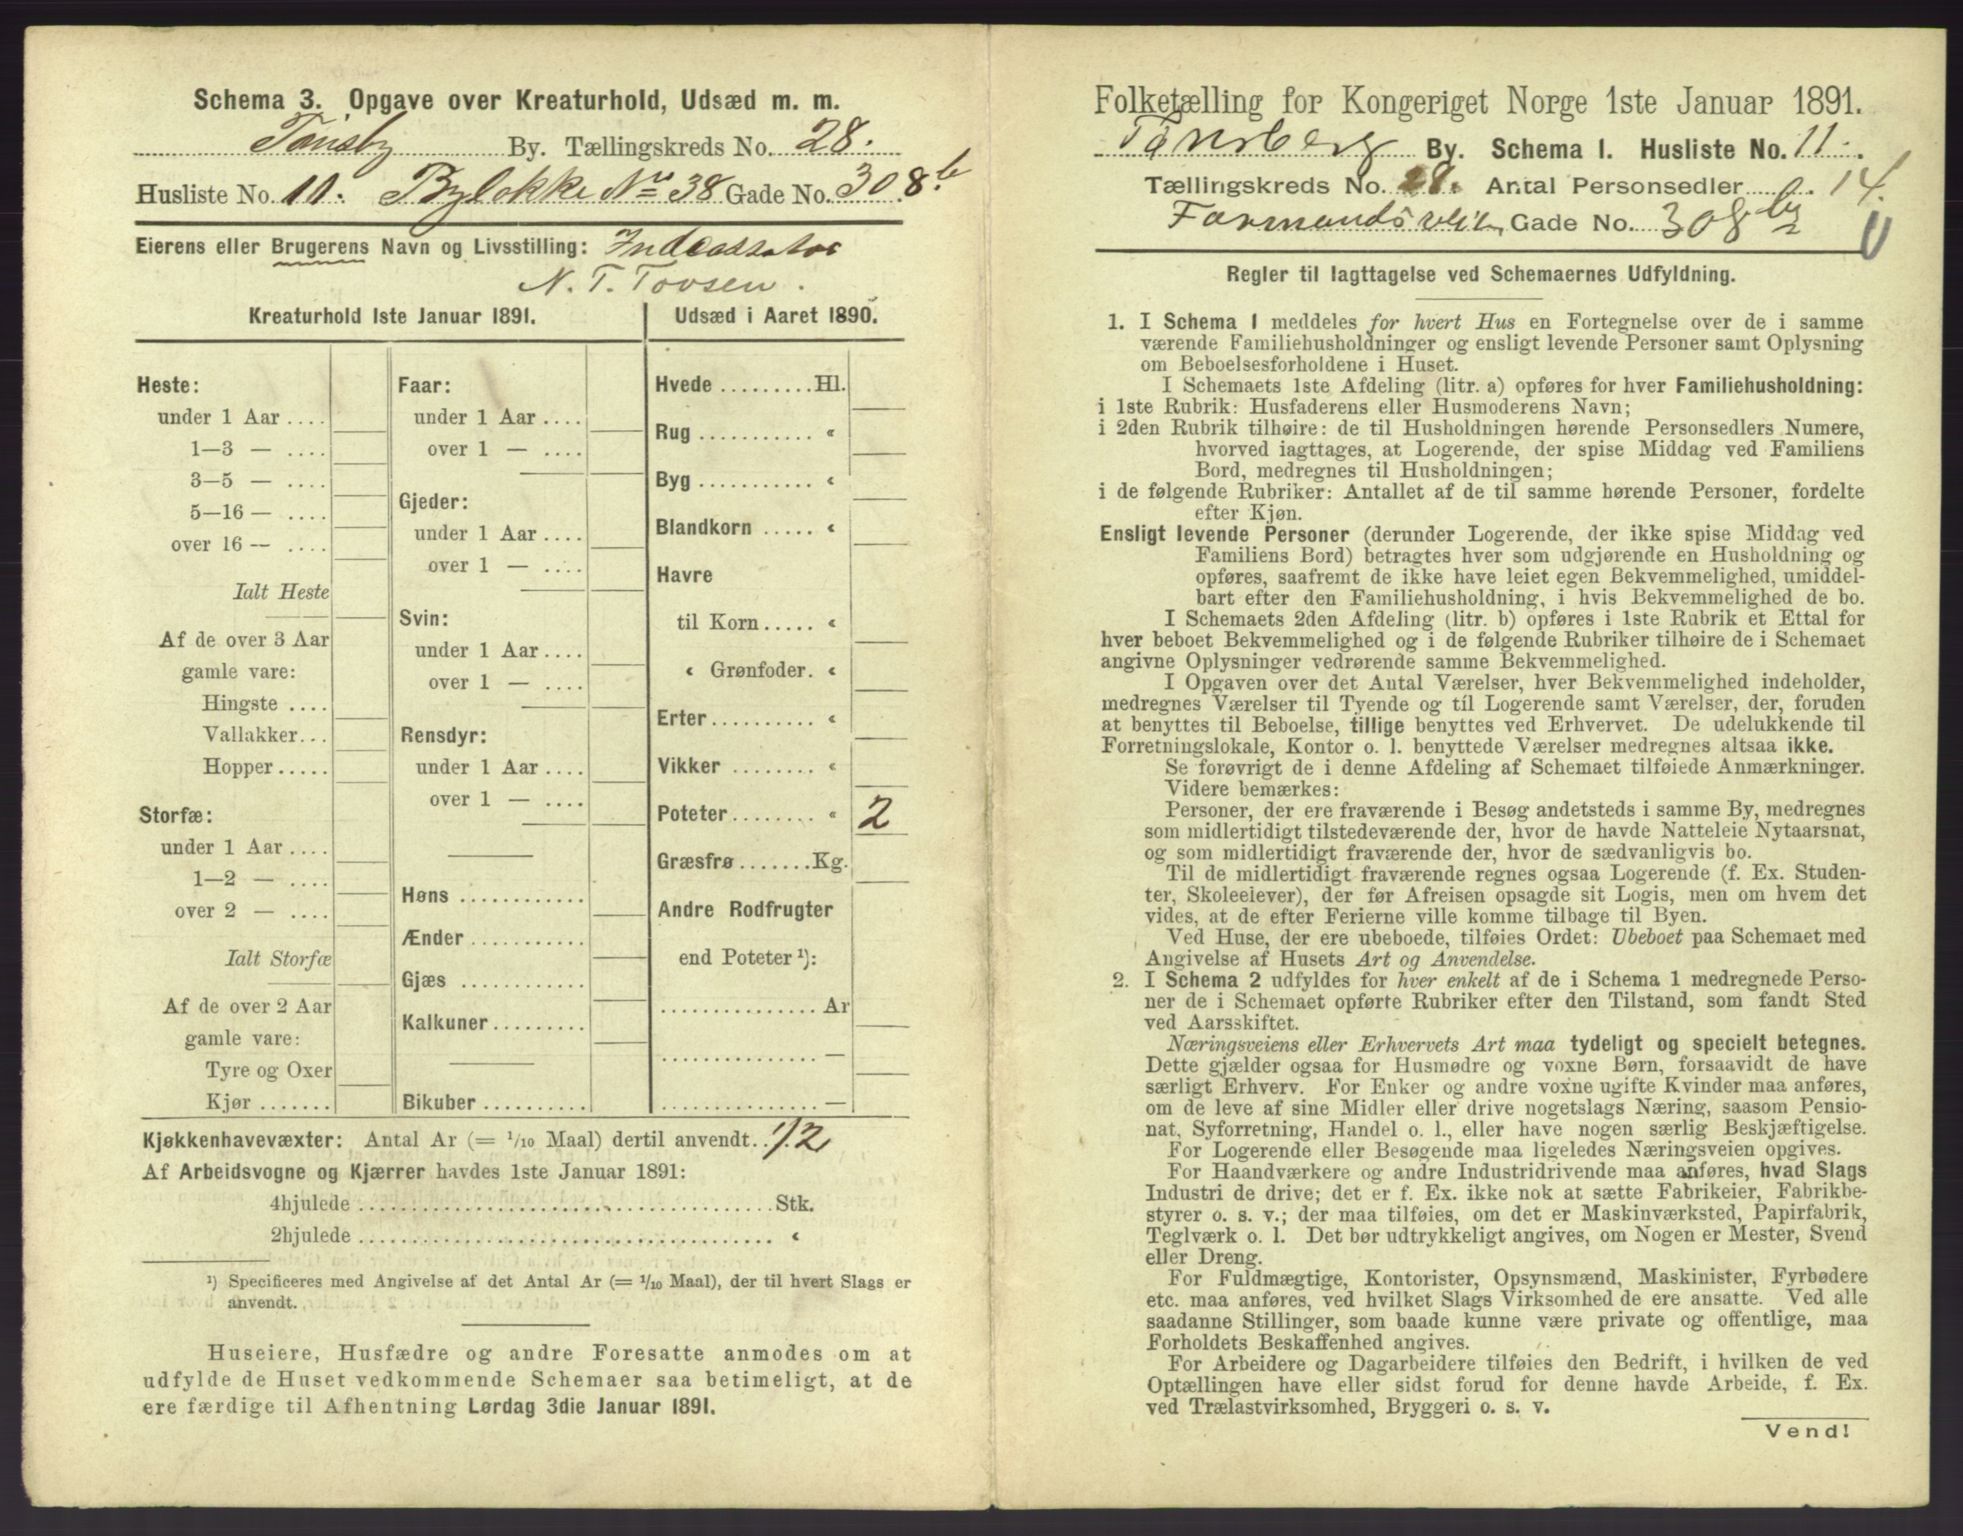 Schema 3. Opgave over Kreaturhold, Udsæd m. m.
Tönsby By. Tællingskreds No. 28.
Husliste No. 11. Byløkke No 38 Gade No. 308 b
Eierens eller Brugerens Navn og Livsstilling:
N. T. Tovsen.
Kreaturhold 1ste Januar 1891. Udsæd i Aaret 1890.
Heste:
under 1 Aar ....
1—3 — ....
3—5 — ....
5—16 — ....
over 16 — ....
Ialt Heste
Af de over 3 Aar
gamle vare:
Hingste ....
Vallakker...
Hopper.....
Storfæ:
under 1 Aar ....
1—2 — ....
over 2 — ....
Ialt Storfæ
Af de over 2 Aar
gamle vare:
Tyre og Oxer
Kjør .......
Faar:
under 1 Aar ....
over 1 — ....
Gjeder:
under 1 Aar ....
over 1 — ....
Svin:
under 1 Aar ....
over 1 — ....
Rensdyr:
under 1 Aar ....
over 1 — ....
Høns ............
Ænder ...........
Gjæs ............
Kalkuner.........
Bikuber ..........
Hvede .........Hl.
Rug ........... «
Byg ........... «
Blandkorn ..... «
Havre
til Korn..... «
« Grønfoder. «
Erter.......... «
Vikker ........ «
Poteter........ « 2
Græsfrø .......Kg.
Andre Rodfrugter
end Poteter ¹):
............... Ar
............... —
............... —
Kjøkkenhavevæxter: Antal Ar (= 1/10 Maal) dertil anvendt.. 1/2
Af Arbeidsvogne og Kjærrer havdes 1ste Januar 1891:
4hjulede ........................................ Stk.
2hjulede ........................................ «
¹) Specificeres med Angivelse af det Antal Ar (= 1/10 Maal), der til hvert Slags er
anvendt.
Huseiere, Husfædre og andre Foresatte anmodes om at
udfylde de Huset vedkommende Schemaer saa betimeligt, at de
ere færdige til Afhentning Lørdag 3die Januar 1891.
Folketælling for Kongeriget Norge 1ste Januar 1891.
Tönsberg By. Schema I. Husliste No. 11.
Tællingskreds No. 28. Antal Personsedler 14.
Farmandsveien Gade No. 308 b
Regler til Iagttagelse ved Schemaernes Udfyldning.
1. I Schema 1 meddeles for hvert Hus en Fortegnelse over de i samme
værende Familiehusholdninger og ensligt levende Personer samt Oplysning
om Beboelsesforholdene i Huset.
I Schemaets 1ste Afdeling (litr. a) opføres for hver Familiehusholdning:
i 1ste Rubrik: Husfaderens eller Husmoderens Navn;
i 2den Rubrik tilhøire: de til Husholdningen hørende Personsedlers Numere,
hvorved iagttages, at Logerende, der spise Middag ved Familiens
Bord, medregnes til Husholdningen;
i de følgende Rubriker: Antallet af de til samme hørende Personer, fordelte
efter Kjøn.
Ensligt levende Personer (derunder Logerende, der ikke spise Middag ved
Familiens Bord) betragtes hver som udgjørende en Husholdning og
opføres, saafremt de ikke have leiet egen Bekvemmelighed, umiddel-
bart efter den Familiehusholdning, i hvis Bekvemmelighed de bo.
I Schemaets 2den Afdeling (litr. b) opføres i 1ste Rubrik et Ettal for
hver beboet Bekvemmelighed og i de følgende Rubriker tilhøire de i Schemaet
angivne Oplysninger vedrørende samme Bekvemmelighed.
I Opgaven over det Antal Værelser, hver Bekvemmelighed indeholder,
medregnes Værelser til Tyende og til Logerende samt Værelser, der, foruden
at benyttes til Beboelse, tillige benyttes ved Erhvervet. De udelukkende til
Forretningslokale, Kontor o. l. benyttede Værelser medregnes altsaa ikke.
Se forøvrigt de i denne Afdeling af Schemaet tilføiede Anmærkninger.
Videre bemærkes:
Personer, der ere fraværende i Besøg andetsteds i samme By, medregnes
som midlertidigt tilstedeværende der, hvor de havde Natteleie Nytaarsnat,
og som midlertidigt fraværende der, hvor de sædvanligvis bo.
Til de midlertidigt fraværende regnes ogsaa Logerende (f. Ex. Studen-
ter, Skoleelever), der før Afreisen opsagde sit Logis, men om hvem det
vides, at de efter Ferierne ville komme tilbage til Byen.
Ved Huse, der ere ubeboede, tilføies Ordet: Ubeboet paa Schemaet med
Angivelse af Husets Art og Anvendelse.
2. I Schema 2 udfyldes for hver enkelt af de i Schema 1 medregnede Perso-
ner de i Schemaet opførte Rubriker efter den Tilstand, som fandt Sted
ved Aarsskiftet.
Næringsveiens eller Erhvervets Art maa tydeligt og specielt betegnes.
Dette gjælder ogsaa for Husmødre og voxne Børn, forsaavidt de have
særligt Erhverv. For Enker og andre voxne ugifte Kvinder maa anføres,
om de leve af sine Midler eller drive nogetslags Næring, saasom Pensio-
nat, Syforretning, Handel o. l., eller have nogen særlig Beskjæftigelse.
For Logerende eller Besøgende maa ligeledes Næringsveien opgives.
For Haandværkere og andre Industridrivende maa anføres, hvad Slags
Industri de drive; det er f. Ex. ikke nok at sætte Fabrikeier, Fabrikbe-
styrer o. s. v.; der maa tilføies, om det er Maskinværksted, Papirfabrik,
Teglværk o. l. Det bør udtrykkeligt angives, om Nogen er Mester, Svend
eller Dreng.
For Fuldmægtige, Kontorister, Opsynsmænd, Maskinister, Fyrbødere
etc. maa anføres, ved hvilket Slags Virksomhed de ere ansatte. Ved alle
saadanne Stillinger, som baade kunne være private og offentlige, maa
Forholdets Beskaffenhed angives.
For Arbeidere og Dagarbeidere tilføies den Bedrift, i hvilken de ved
Optællingen have eller sidst forud for denne havde Arbeide, f. Ex.
ved Trælastvirksomhed, Bryggeri o. s. v.
Vend!